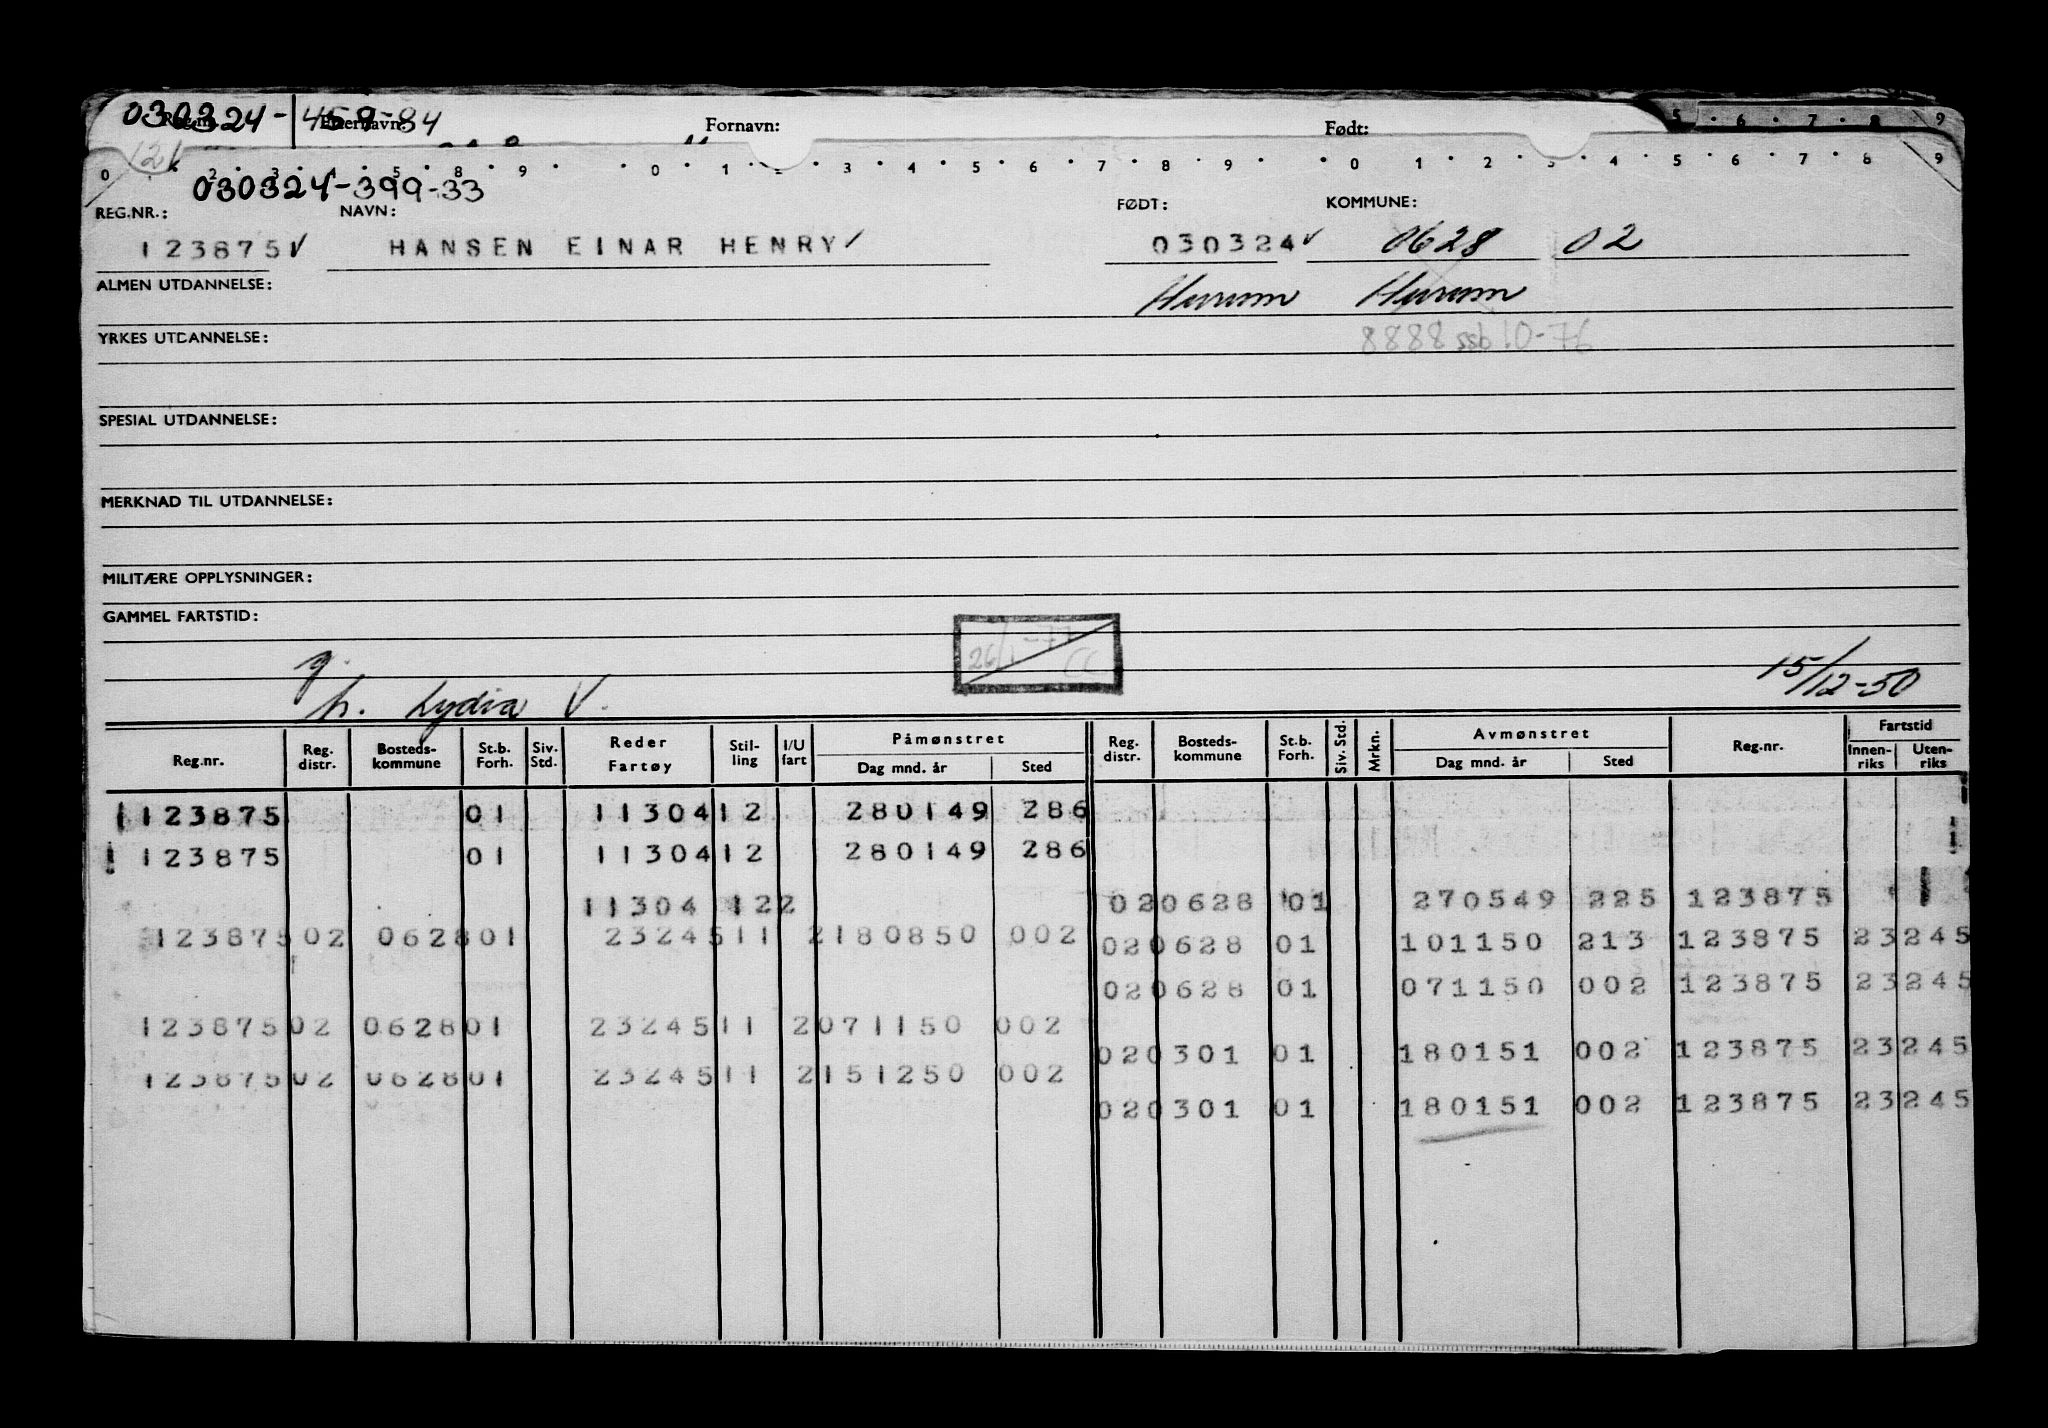 030324-459-84
Reg.nr. Etternavn: Fornavn: Født:
5 · 6 · 7 · 8 · 9
0 · 2 · 3 · 4 · 5 8 · 9 · · 0 · 1 · 2 · 3 · 4 · 5 · 6 · 7 · 8 · 9 · · 0 · 1 · 2 · 3 · 4 · 5 · 6 · 7 · 8 · 9
030324-399-33
REG.NR.: NAVN: FØDT: KOMMUNE:
123875✓ HANSEN EINAR HENRY✓ 030324✓ 0628 02
ALMEN UTDANNELSE: Hurum Hurum
YRKES UTDANNELSE: 8888 ssb 10-76
SPESIAL UTDANNELSE:
MERKNAD TIL UTDANNELSE:
MILITÆRE OPPLYSNINGER:
GAMMEL FARTSTID:
g. 26/1-77 15/12-50
h. Lydia V.
Reg.nr. Reg. distr. Bosteds-kommune St.b. Forh. Siv. Std. Reder Fartøy Stil-ling I/U fart Påmønstret Dag mnd. år Sted Reg. distr. Bosteds-kommune St.b. Forh. Siv. Std. Mrkn. Avmønstret Dag mnd. år Sted Reg.nr. Fartstid Innen-riks Uten-riks
123875 01 11304 12 280149 286
123875 01 11304 12 280149 286
11304 122 02 0628 01 270549 225 123875
123875 02 0628 01 23245 11 2 180850 002 02 0628 01 101150 213 123875 23245
02 0628 01 071150 002 123875 23245
123875 02 0628 01 23245 11 2 071150 002
02 0301 01 180151 002 123875 23245
123875 02 0628 01 23245 11 2 151250 002
02 0301 01 180151 002 123875 23245